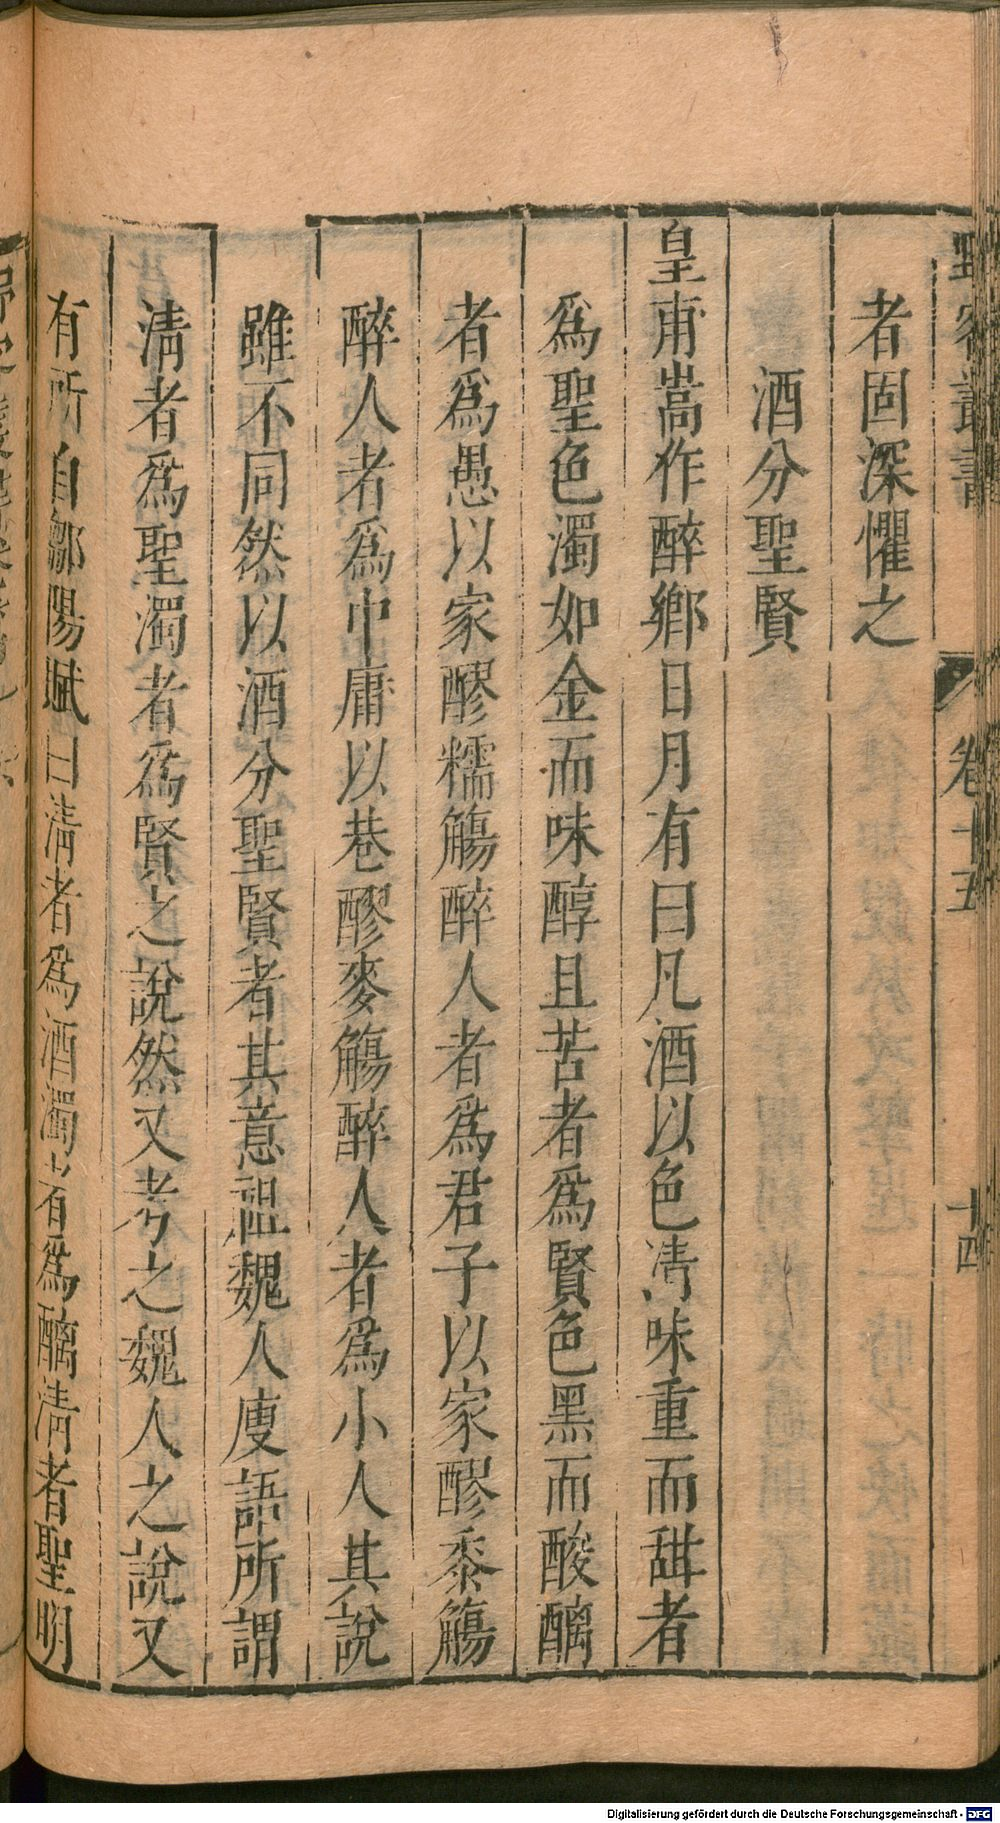 野客叢書 卷十五 十四
者固深懼之
酒分聖賢
皇甫嵩作醉鄉日月有曰凡酒以色清味重而甜者
爲聖色濁如金而味醇且苦者爲賢色黑而酸醨
者爲愚以家醪糯觴醉人者爲君子以家醪黍觴
醉人者爲中庸以巷醪麥觴醉人者爲小人其說
雖不同然以酒分聖賢者其意祖魏人廋語所謂
清者爲聖濁者爲賢之說然又考之魏人之說又
有所自鄒陽賦曰清者爲酒濁者爲醨清者聖明
Digitalisierung gefördert durch die Deutsche Forschungsgemeinschaft - DFG